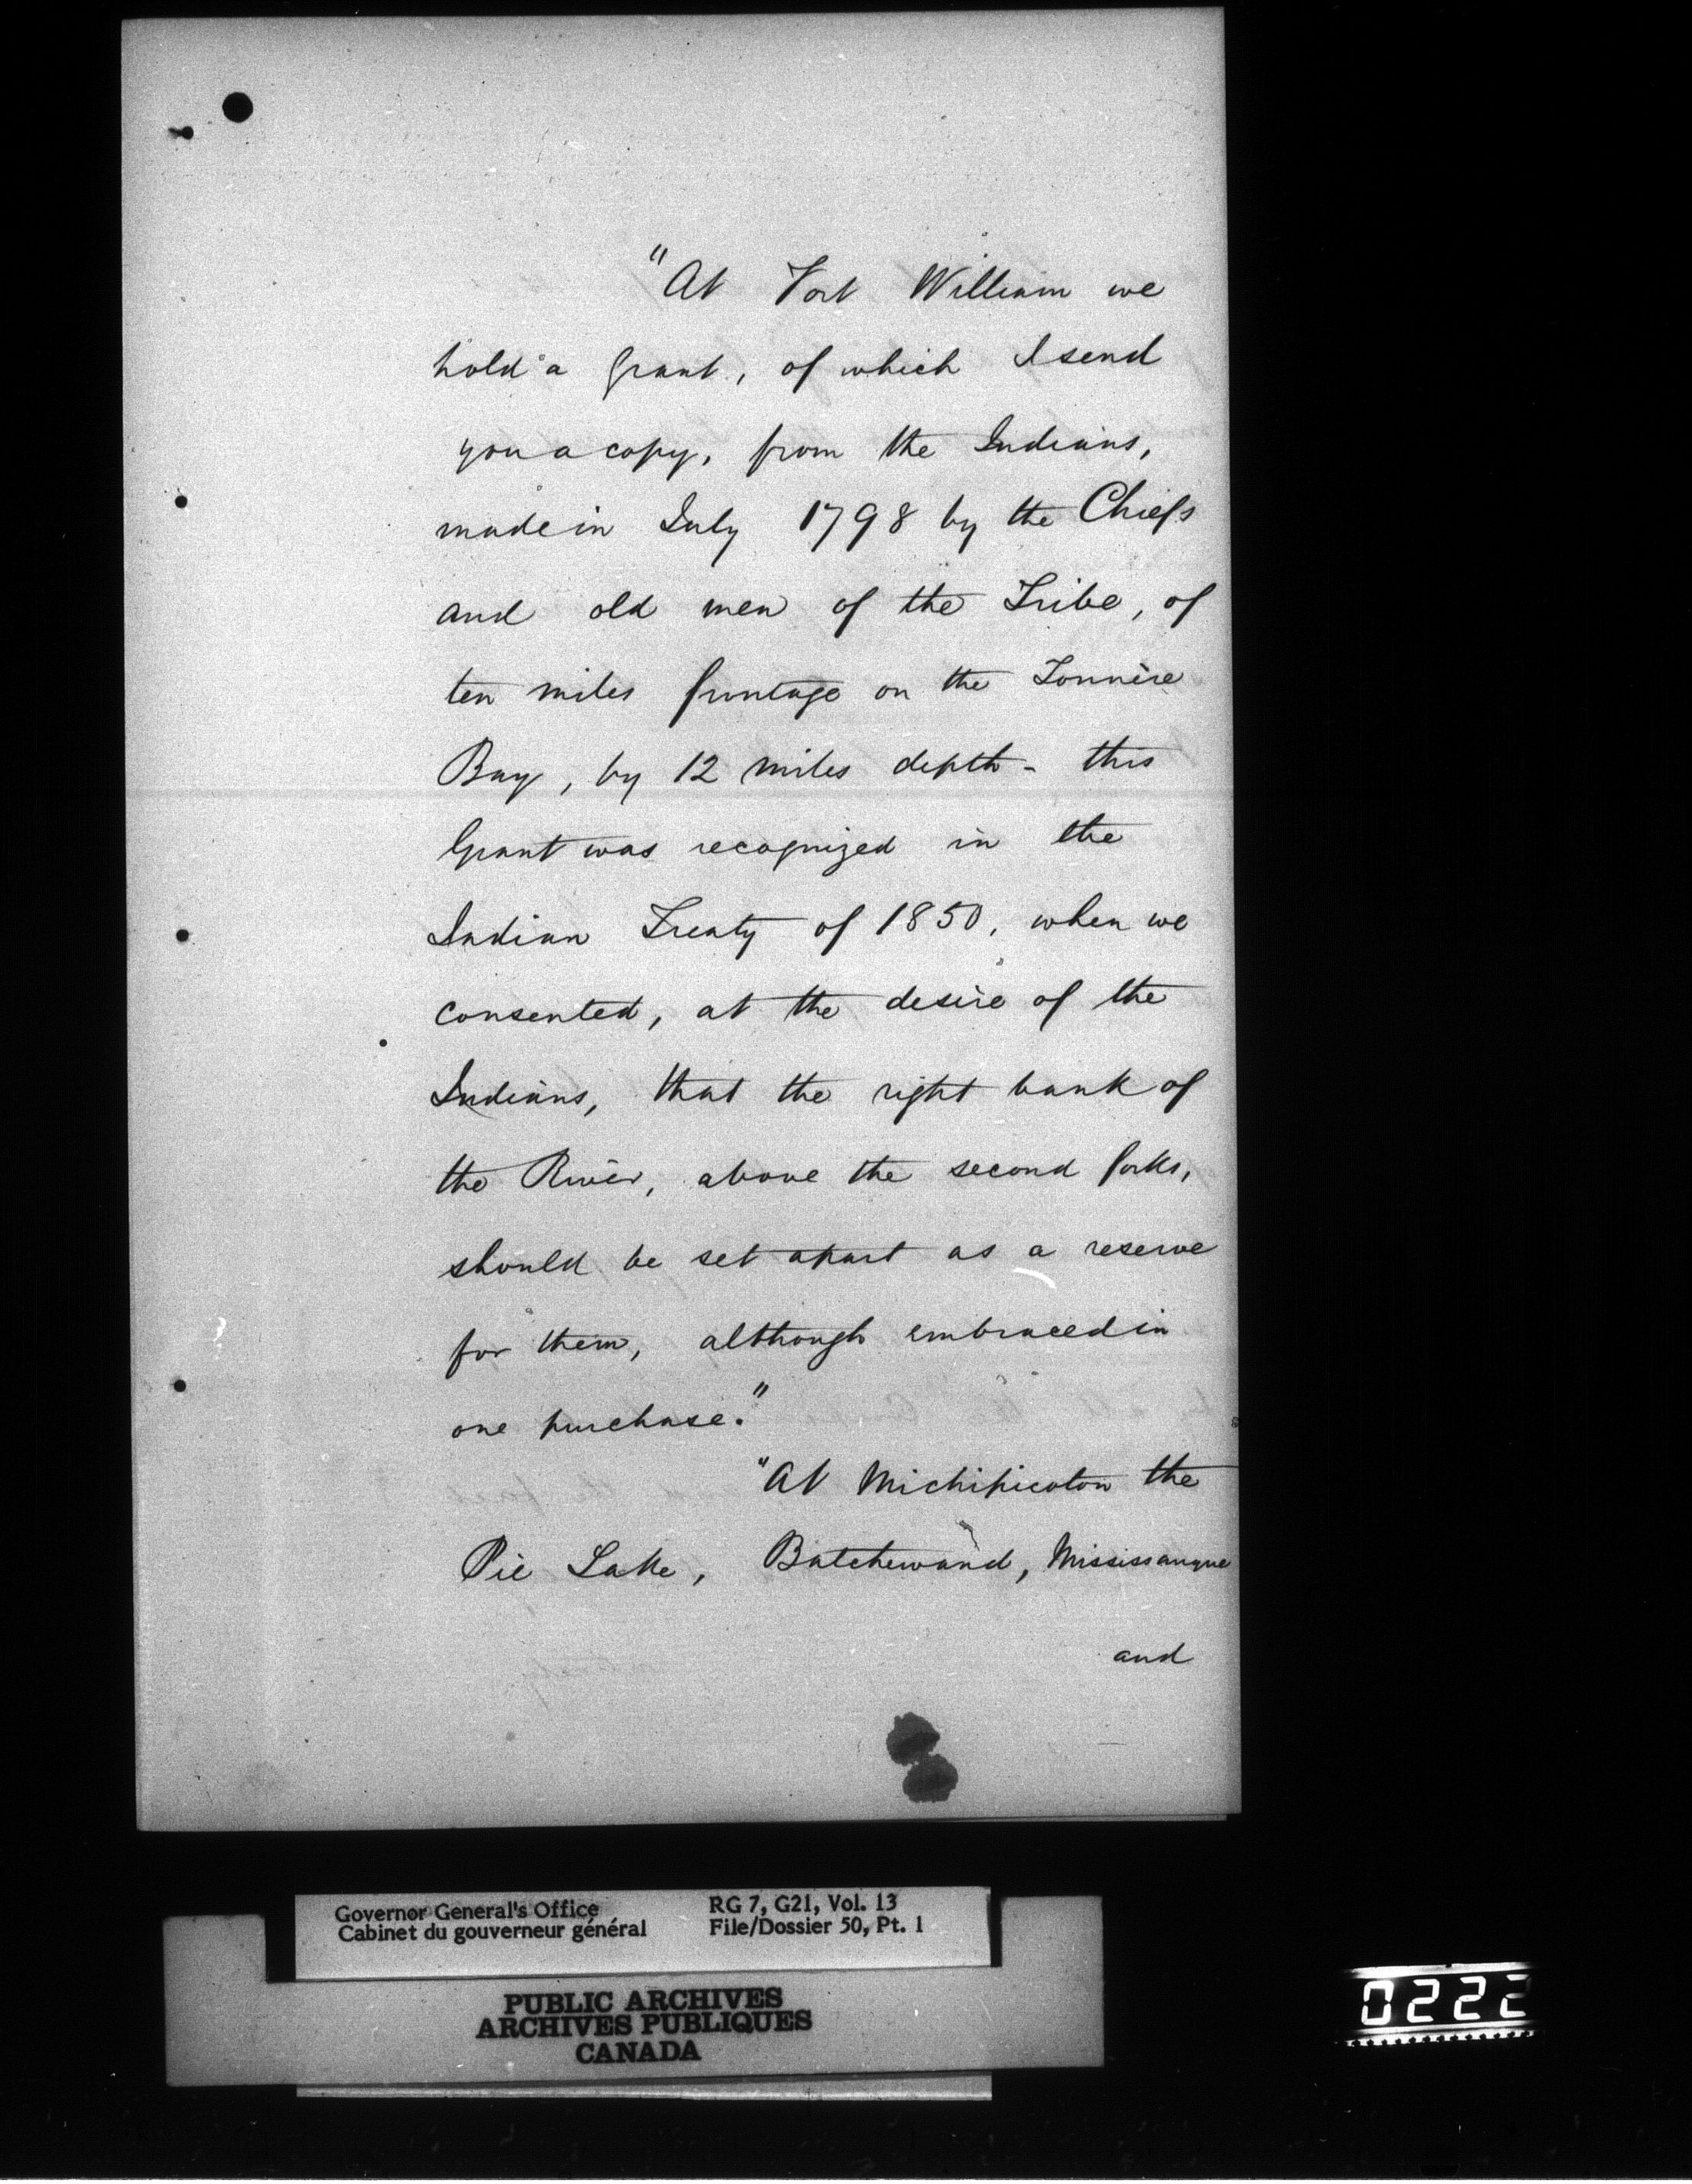 "At Fort William we
hold a grant, of which I send
you a copy, from the Indians,
made in July 1798 by the Chiefs
and old men of the Tribe, of
ten miles frontage on the Tonnère
Bay, by 12 miles depth - this
Grant was recognized in the
Indian Treaty of 1850, when we
consented, at the desire of the
Indians, that the right bank of
the River, above the second forks,
should be set apart as a reserve
for them, although embraced in
one purchase."
"At Michipicoton the
Pic Lake, Batchewand, Mississaugue
and
Governor General's Office
Cabinet du gouverneur général
RG 7, G21, Vol. 13
File/Dossier 50, Pt. 1
PUBLIC ARCHIVES
ARCHIVES PUBLIQUES
CANADA
0222